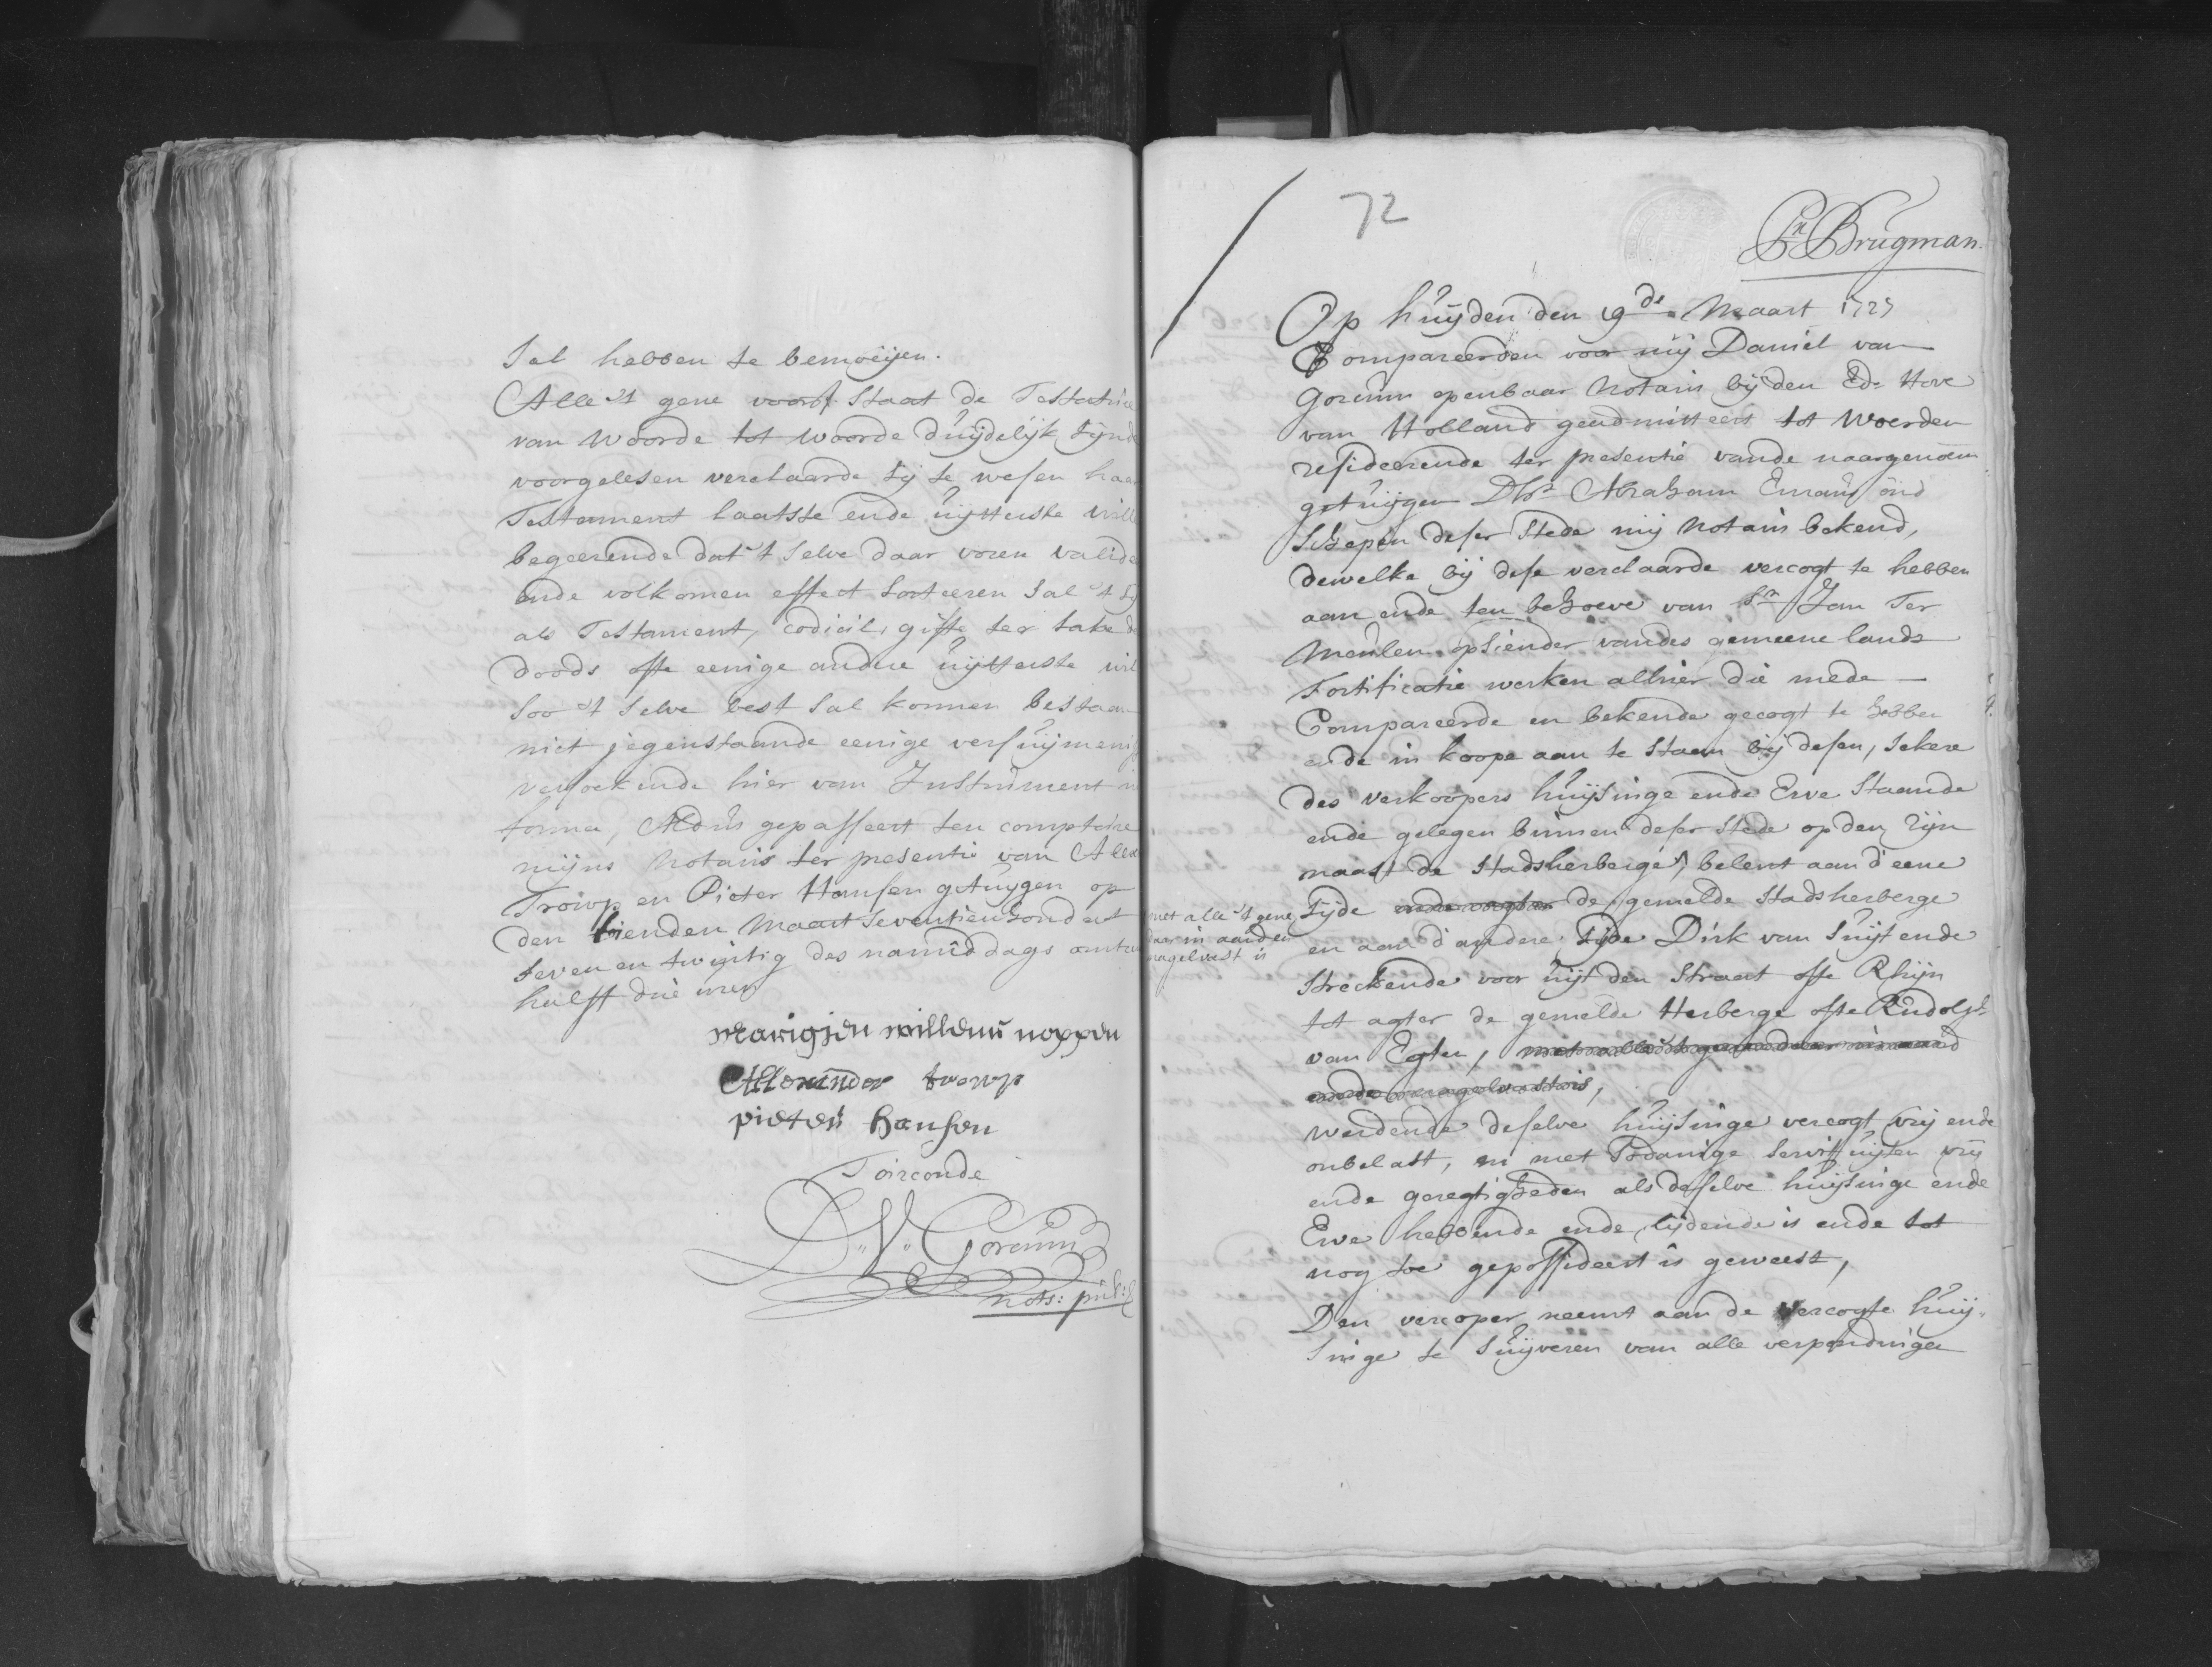 Sal hebben te bemoeijen.
Alle 't gene voors: Staat de Testatrice
van woorde tot woorde duijdelijk sijnde
voorgelesen verclaarde sij te wesen haar
Testament laatste ende uijtterste wille
begeerende dat 't selve daar voren valide
ende volkomen effect sorteeren sal 't sij
als Testament, codicil, gifte ter sake des
doods ofte eenige andere uijtterste wil
soo 't selve best sal konnen bestaan
niet jegenstaande eenige versuijmenis
versoekende hier van Instrument in
forma, Aldus gepasseert ten comptoire
mijns Notaris ter presentie van Alex
Troiwp en Pieter Hansen getuijgen op
den tienden Maart seventienhondert
seven en twijntig des namiddags omtre
half drie uren
Marigjen willems noppen
Allexander
pieter Hansen
T'oirconde
D. V. Gorcum
nots: publ:
72
Sr Brugman.
Op huijden den 19de Maart 1727
Compareerden voor mij Daniel van
Gorcum openbaar Notaris bij den Ede Hove
van Holland geadmitteert tot Woerden
resideerende ter presentie vande naargenoem
getuijgen Dhr Abraham Emans oud
Schepen deser Stede mij Notaris bekend,
dewelke bij dese verclaarde vercogt te hebben
aan ende ten behoeve van Sr Jan Ter
Meulen opsiender vandes gemeene lands
Fortificatie werken alhier die mede
Compareerde en bekende gecogt te hebben
ende in koope aan te staan bij desen, sekere
des verkoopers huijsinge ende Erve staande
ende gelegen binnen deser stede op den Rijn
naast de Stadsherberge, belent aan d'eene
met alle 't gene
daar in aarden
nagelvast is
sijde de gemelde Stadsherberge
en aan d'andere sijde Dirk van Suijt ende
streckende voor uijt den straat ofte Rhijn
tot agter de gemelde Herberge ofte Rudolph
van Egten, met alle 't gene daar in aard
ende nagelvast is,
werdende deselve huijsinge vercogt vrij ende
onbelast, en met sodanige servituijten vrij
ende geregtigheden als deselve huijsinge ende
Erve hebbende ende lijdende is ende tot
nog toe gepossideert is geweest,
Den vercoper neemt aan de vercogte huij-
singe te suijveren van alle verpondingen